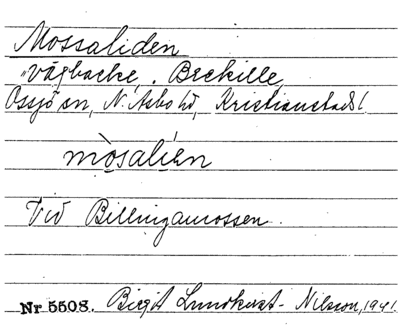 Mossaliden
"vägbacke". Beckille
Össjö sn, N. Åsbo hd, Kristianstad l.
mòsalíen
Vid Billingamossen.
Nr 5508. Birgit Lundkvist-Nilsson, 1941.